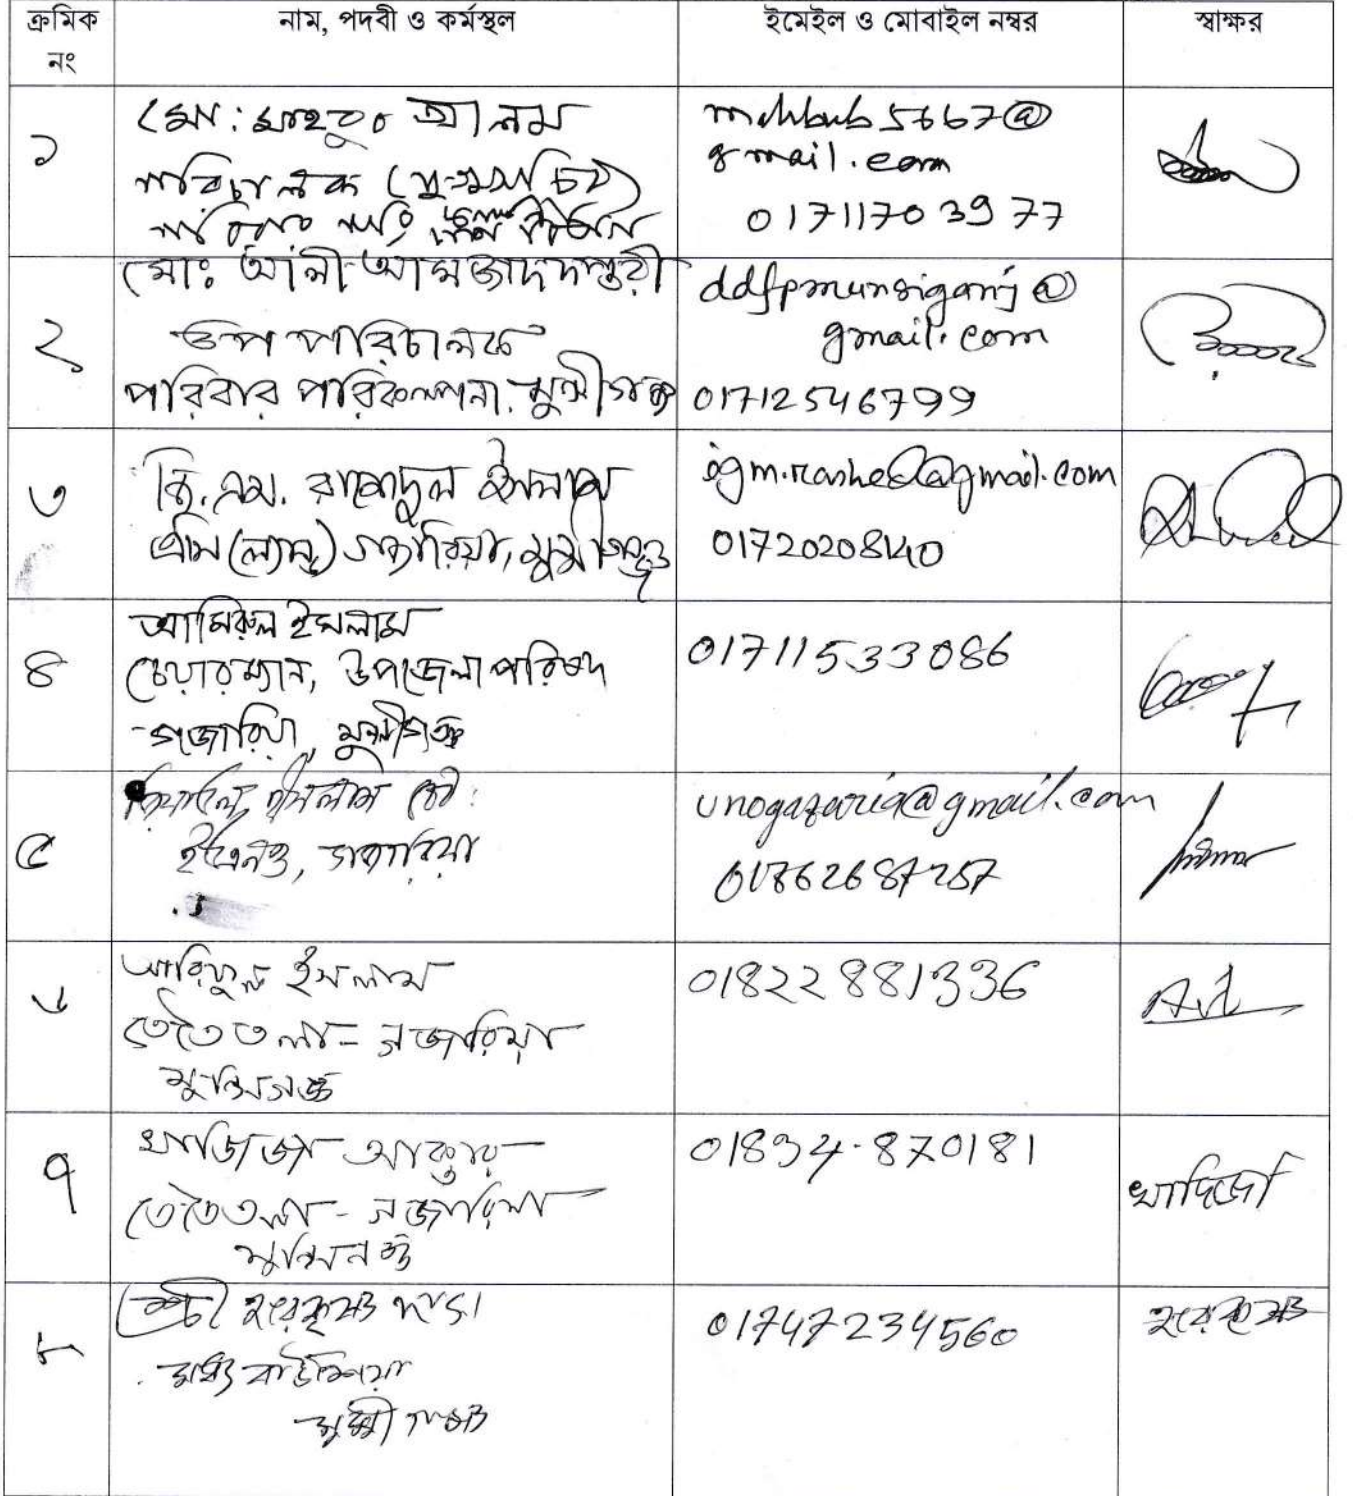 ক্রমিক নং
নাম, পদবী ও কর্মস্থল
ইমেইল ও মোবাইল নম্বর
স্বাক্ষর
১
মো: মাহবুব আলম
পরিচালক (যুগ্মসচিব)
পরিবার
mahbub5667@
gmail.com
01711703977
২
মোঃ আলী আমজাদ দপ্তরী
উপ পরিচালক
পরিবার পরিকল্পনা, মুন্সীগঞ্জ
ddfpmunsiganj@
gmail.com
01712546799
৩
জি.এম. রাশেদুল ইসলাম
এসি (ল্যান্ড) গজারিয়া, মুন্সীগঞ্জ
01720208140
৪
আমিরুল ইসলাম
চেয়ারম্যান, উপজেলা পরিষদ
গজারিয়া, মুন্সীগঞ্জ
01711533086
৫
ইসলাম
ইউএনও, গজারিয়া
unogazaria@gmail.com
01762687257
৬
আরিফুল ইসলাম
তেতৈতলা - গজারিয়া
মুন্সিগঞ্জ
01822881336
৭
খাদিজা আক্তার
তেতৈতলা - গজারিয়া
মুন্সিগঞ্জ
01834-870181
খাদিজা
৮
শ্রী হরেকৃষ্ণ দাস।
মধ্য বাউশিয়া
মুন্সীগঞ্জ
01747234560
হরেকৃষ্ণ